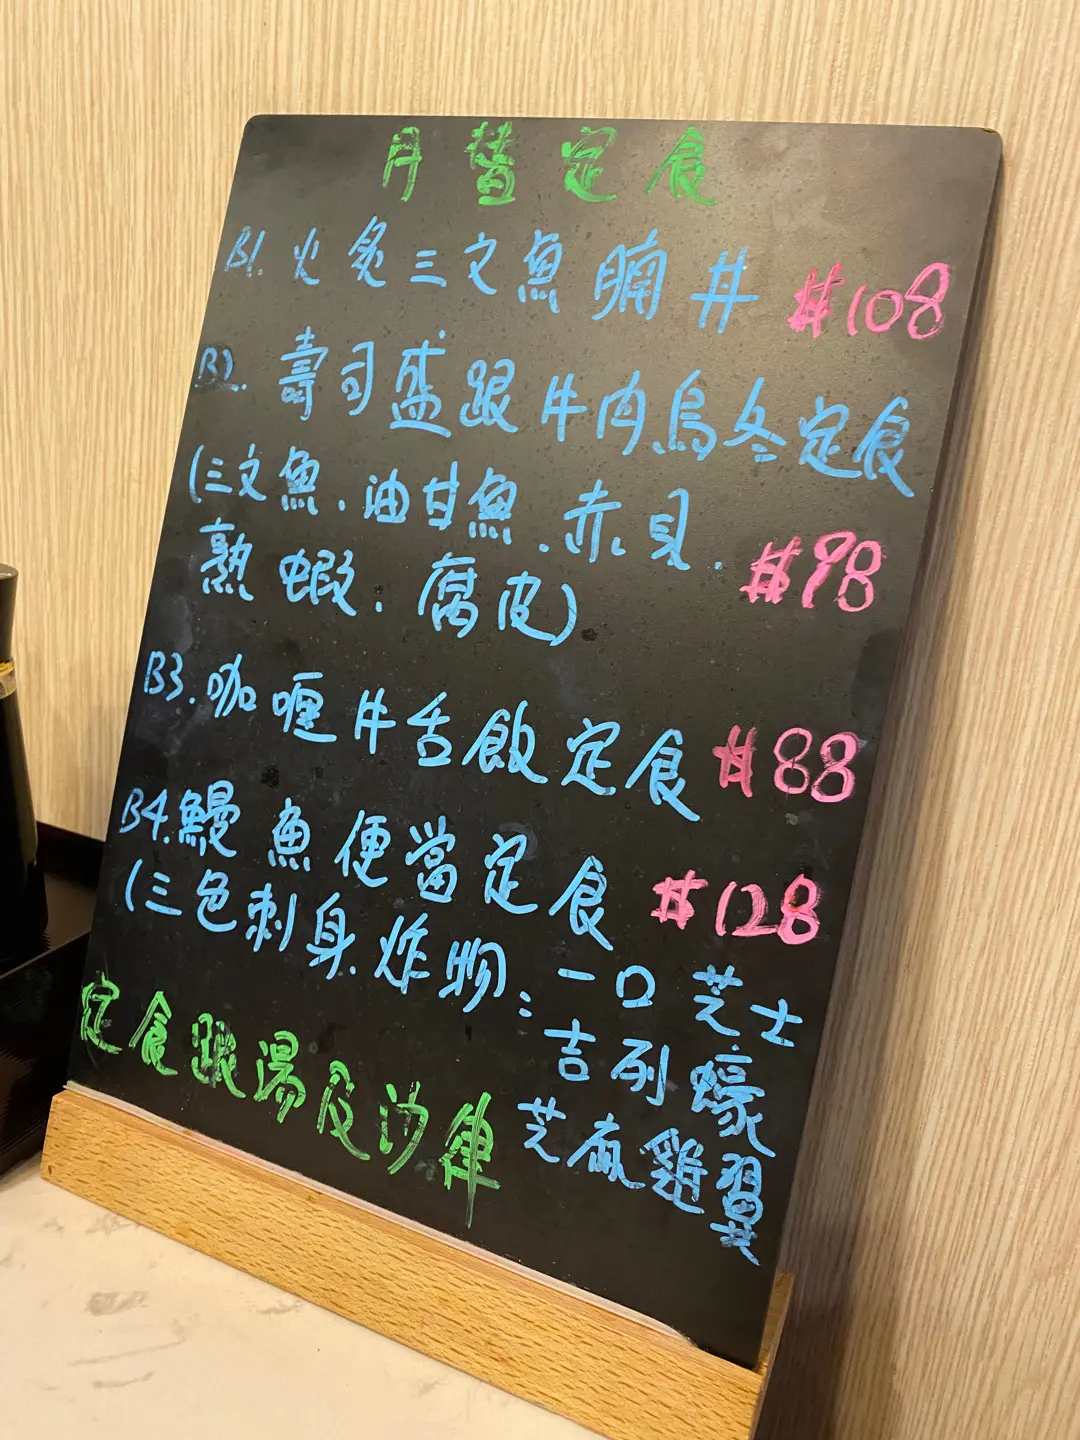 月替定食
B1. 火炙三文魚腩丼 #108
B2. 壽司盛跟牛肉烏冬定食
(三文魚.油甘魚.赤貝.
熟蝦.腐皮) #98
B3. 咖喱牛舌飯定食 #88
B4. 鰻魚便當定食 #128
(三色刺身.炸物:一口芝士
吉列蠔
芝麻雞翼
定食跟湯及沙律